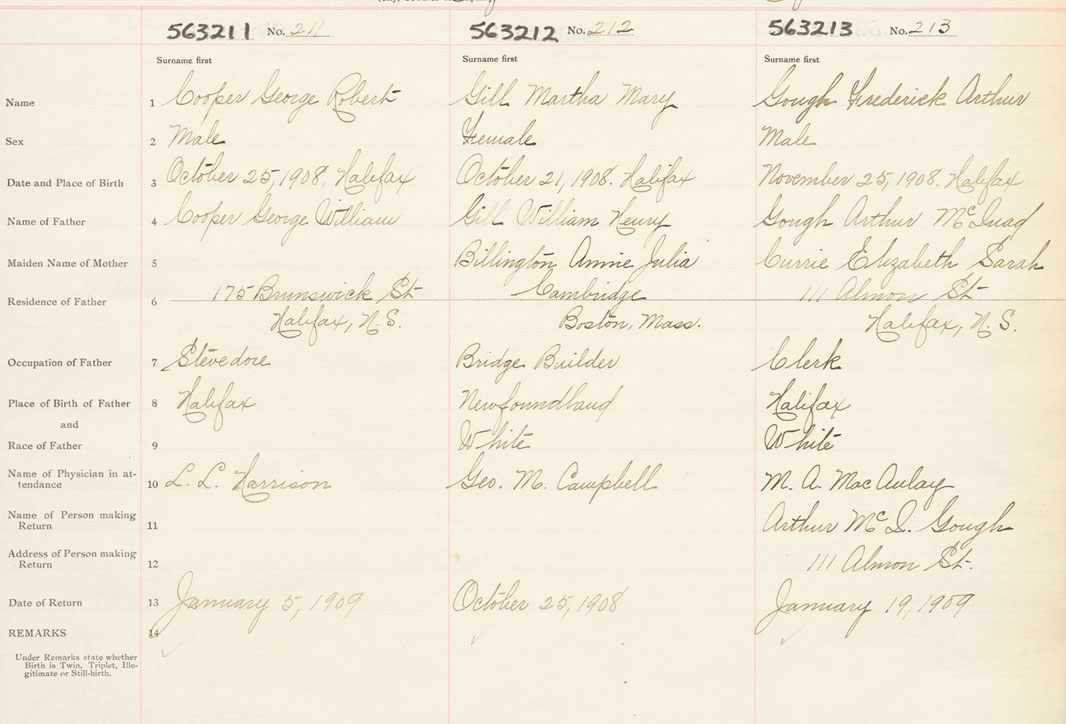 563211 No. 211 563212 No. 212 563213 No. 213
Surname first Surname first Surname first
Name 1 Cooper George Robert Gill Martha Mary Gough Frederick Arthur
Sex 2 Male Female Male
Date and Place of Birth 3 October 25, 1908, Halifax October 21, 1908. Halifax November 25, 1908. Halifax
Name of Father 4 Cooper George William Gill William Henry Gough Arthur McQuad
Maiden Name of Mother 5 Billington Annie Julia Currie Elizabeth Sarah
Residence of Father 6 175 Brunswick St Cambridge 111 Almon St
Halifax, N.S. Boston, Mass. Halifax, N.S.
Occupation of Father 7 Stevedore Bridge Builder Clerk
Place of Birth of Father 8 Halifax Newfoundland Halifax
and
Race of Father 9 White White
Name of Physician in at-
tendance 10 L. L. Harrison Geo. M. Campbell M. A. MacAulay
Name of Person making
Return 11 Arthur Mc Q. Gough
Address of Person making
Return 12 111 Almon St.
Date of Return 13 January 5, 1909 October 25, 1908 January 19, 1909
REMARKS 14
Under Remarks state whether
Birth is Twin, Triplet, Ille-
gitimate or Still-birth.